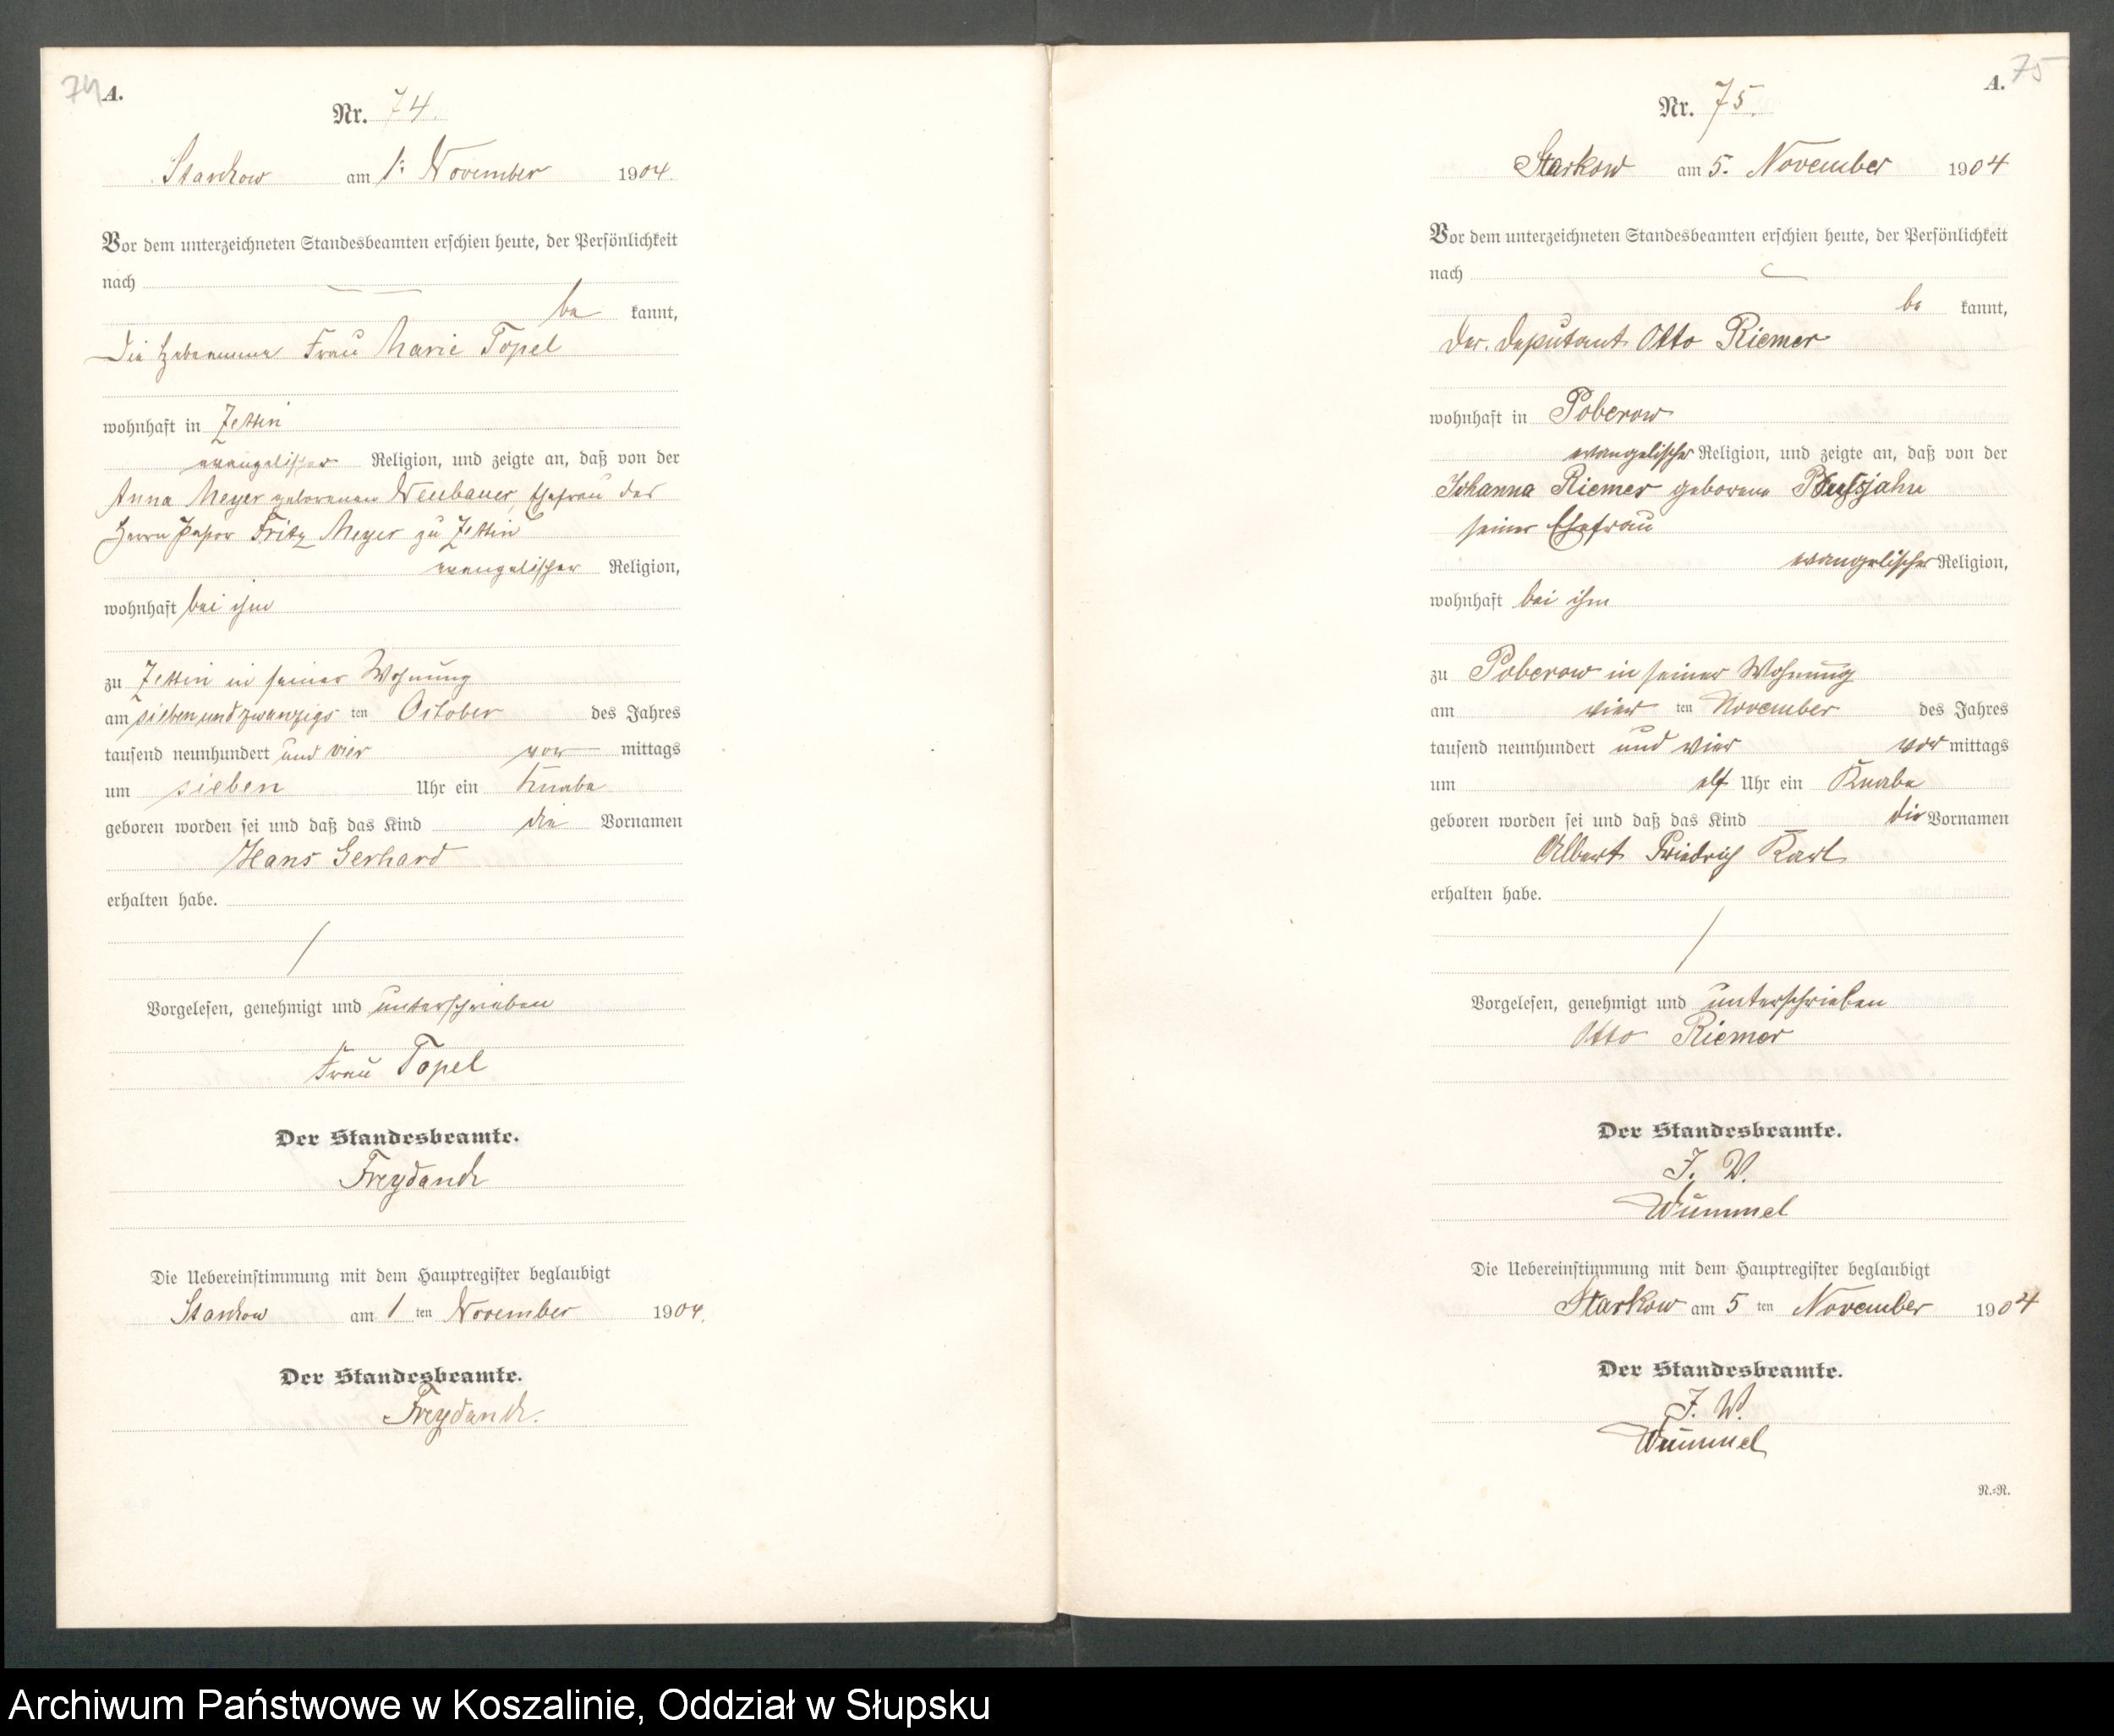 74
A.
Nr. 74.
Starckow am 1. November 1904.
Vor dem unterzeichneten Standesbeamten erschien heute, der Persönlichkeit
nach
be kannt,
die Hebeamme Frau Marie Topel
wohnhaft in Zettin
evangelischer Religion, und zeigte an, daß von der
Anna Meyer geborenen Neubauer, Ehefrau des
Herrn Pastor Fritz Meyer zu Zettin
evangelischer Religion,
wohnhaft bei ihm
zu Zettin in seiner Wohnung
am sieben und zwanzigs ten October des Jahres
tausend neunhundert und vier vor mittags
um sieben Uhr ein Knabe
geboren worden sei und daß das Kind die Vornamen
Hans Gerhard
erhalten habe.
Vorgelesen, genehmigt und unterschrieben
Frau Topel
Der Standesbeamte.
Freydanck
Die Uebereinstimmung mit dem Hauptregister beglaubigt
Starckow am 1 ten November 1904.
Der Standesbeamte.
Freydanck.
75
A.
Nr. 75.
Starkow am 5. November 1904
Vor dem unterzeichneten Standesbeamten erschien heute, der Persönlichkeit
nach
be kannt,
der Deputant Otto Riemer
wohnhaft in Poberow
evangelischer Religion, und zeigte an, daß von der
Johanna Riemer geborene
seiner Ehefrau
evangelischer Religion,
wohnhaft bei ihm
zu Poberow in seiner Wohnung
am vier ten November des Jahres
tausend neunhundert und vier vor mittags
um elf Uhr ein Knabe
geboren worden sei und daß das Kind die Vornamen
Albert Friedrich Karl
erhalten habe.
Vorgelesen, genehmigt und unterschrieben
Otto Riemer
Der Standesbeamte.
J. V.
Wümmel
Die Uebereinstimmung mit dem Hauptregister beglaubigt
Starkow am 5 ten November 1904
Der Standesbeamte.
J. V.
Wümmel
N.=R.
Archiwum Państwowe w Koszalinie, Oddział w Słupsku